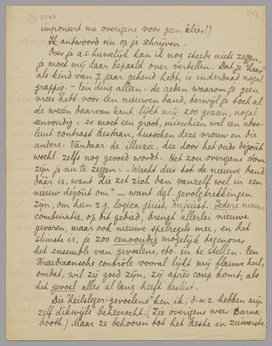 imponeert me overigens voor geen klies!)
Ik antwoord nu op je schrijven.
Over je a.s. huwelijk kan ik nog steeds niets zeggen,
je moet mij daar bepaald over vertellen. Dat je
als kind van 7 jaar gekend hebt, is inderdaad nogal
grappig — len ding alleen: de reden waarom je geen
vrees hebt voor een nieuwen band, terwijl je toch al
de weeën daarvan kent, lijkt mij, zoo gezien, nogal
eenvoudig: er moet een groot, misschien wel een abso-
luut contrast bestaan, tusschen deze vrouw en die
andere. Vandaar de illuzie, die door het oude dégoût
wschl. zelfs nog gevoed wordt. Het zou overigens dom
zijn je nu te zeggen: "Wacht dus tot de nieuwe band
daar is, want die zet zich dan vanzelf wel in een
nieuw dégoût om" — want dgl. gevolgtrekkingen
zijn, om hun z.g. logica juist, onjuist. Iedere nieuwe
combinatie, op dit gebied, brengt allerlei nieuwe
gevaren, maar ook nieuwe spelregels mee, en het
slimste is, je zoo eenvoudig mogelijk tegenover
het ensemble van gevoelens, etc. in te stellen. Een
Freudiaansche contrôle vooral lijkt mij flauwe kul,
omdat, wil zij goed zijn, zij après coup komt, als
het gevoel alles al lang heeft beslist.
Die "heiliger-gevoelens" ken ik, d.w.z. hebben mij
zelf dikwijls beheerscht. (Zie overigens weer Barna-
booth.) Maar ze behooren tot het beste en zuiverste